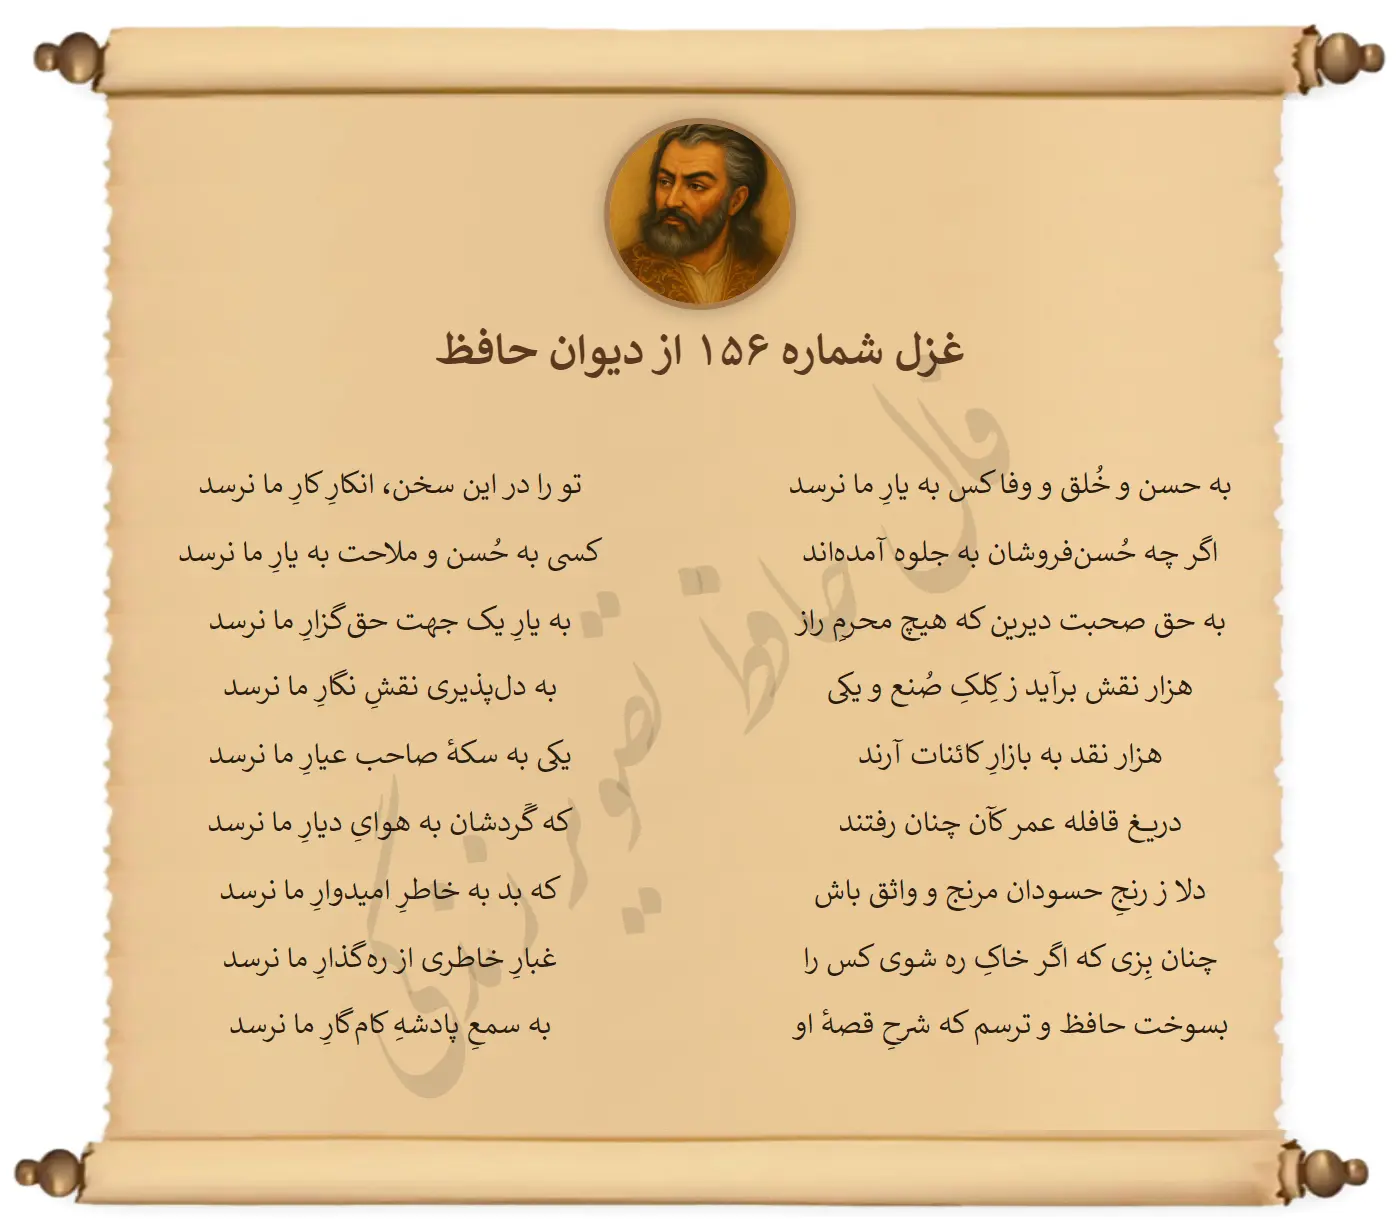 غزل شماره ۱۵۶ از دیوان حافظ
به حسن و خُلق و وفا کس به یارِ ما نرسد تو را در این سخن، انکارِ کارِ ما نرسد
اگر چه حُسن‌فروشان به جلوه آمده‌اند کسی به حُسن و ملاحت به یارِ ما نرسد
به حق صحبت دیرین که هیچ محرمِ راز به یارِ یک جهت حق‌گزارِ ما نرسد
هزار نقش برآید ز کِلکِ صُنع و یکی به دل‌پذیری نقشِ نگارِ ما نرسد
هزار نقد به بازارِ کائنات آرند یکی به سکهٔ صاحب عیارِ ما نرسد
دریغ قافله عمر کآن چنان رفتند که گَردشان به هوایِ دیارِ ما نرسد
دلا ز رنجِ حسودان مرنج و واثق باش که بد به خاطرِ امیدوارِ ما نرسد
چنان بِزی که اگر خاکِ ره شوی کس را غبارِ خاطری از ره‌گذارِ ما نرسد
بسوخت حافظ و ترسم که شرحِ قصهٔ او به سمعِ پادشهِ کام‌گارِ ما نرسد
فال حافظ تصویر زندگی